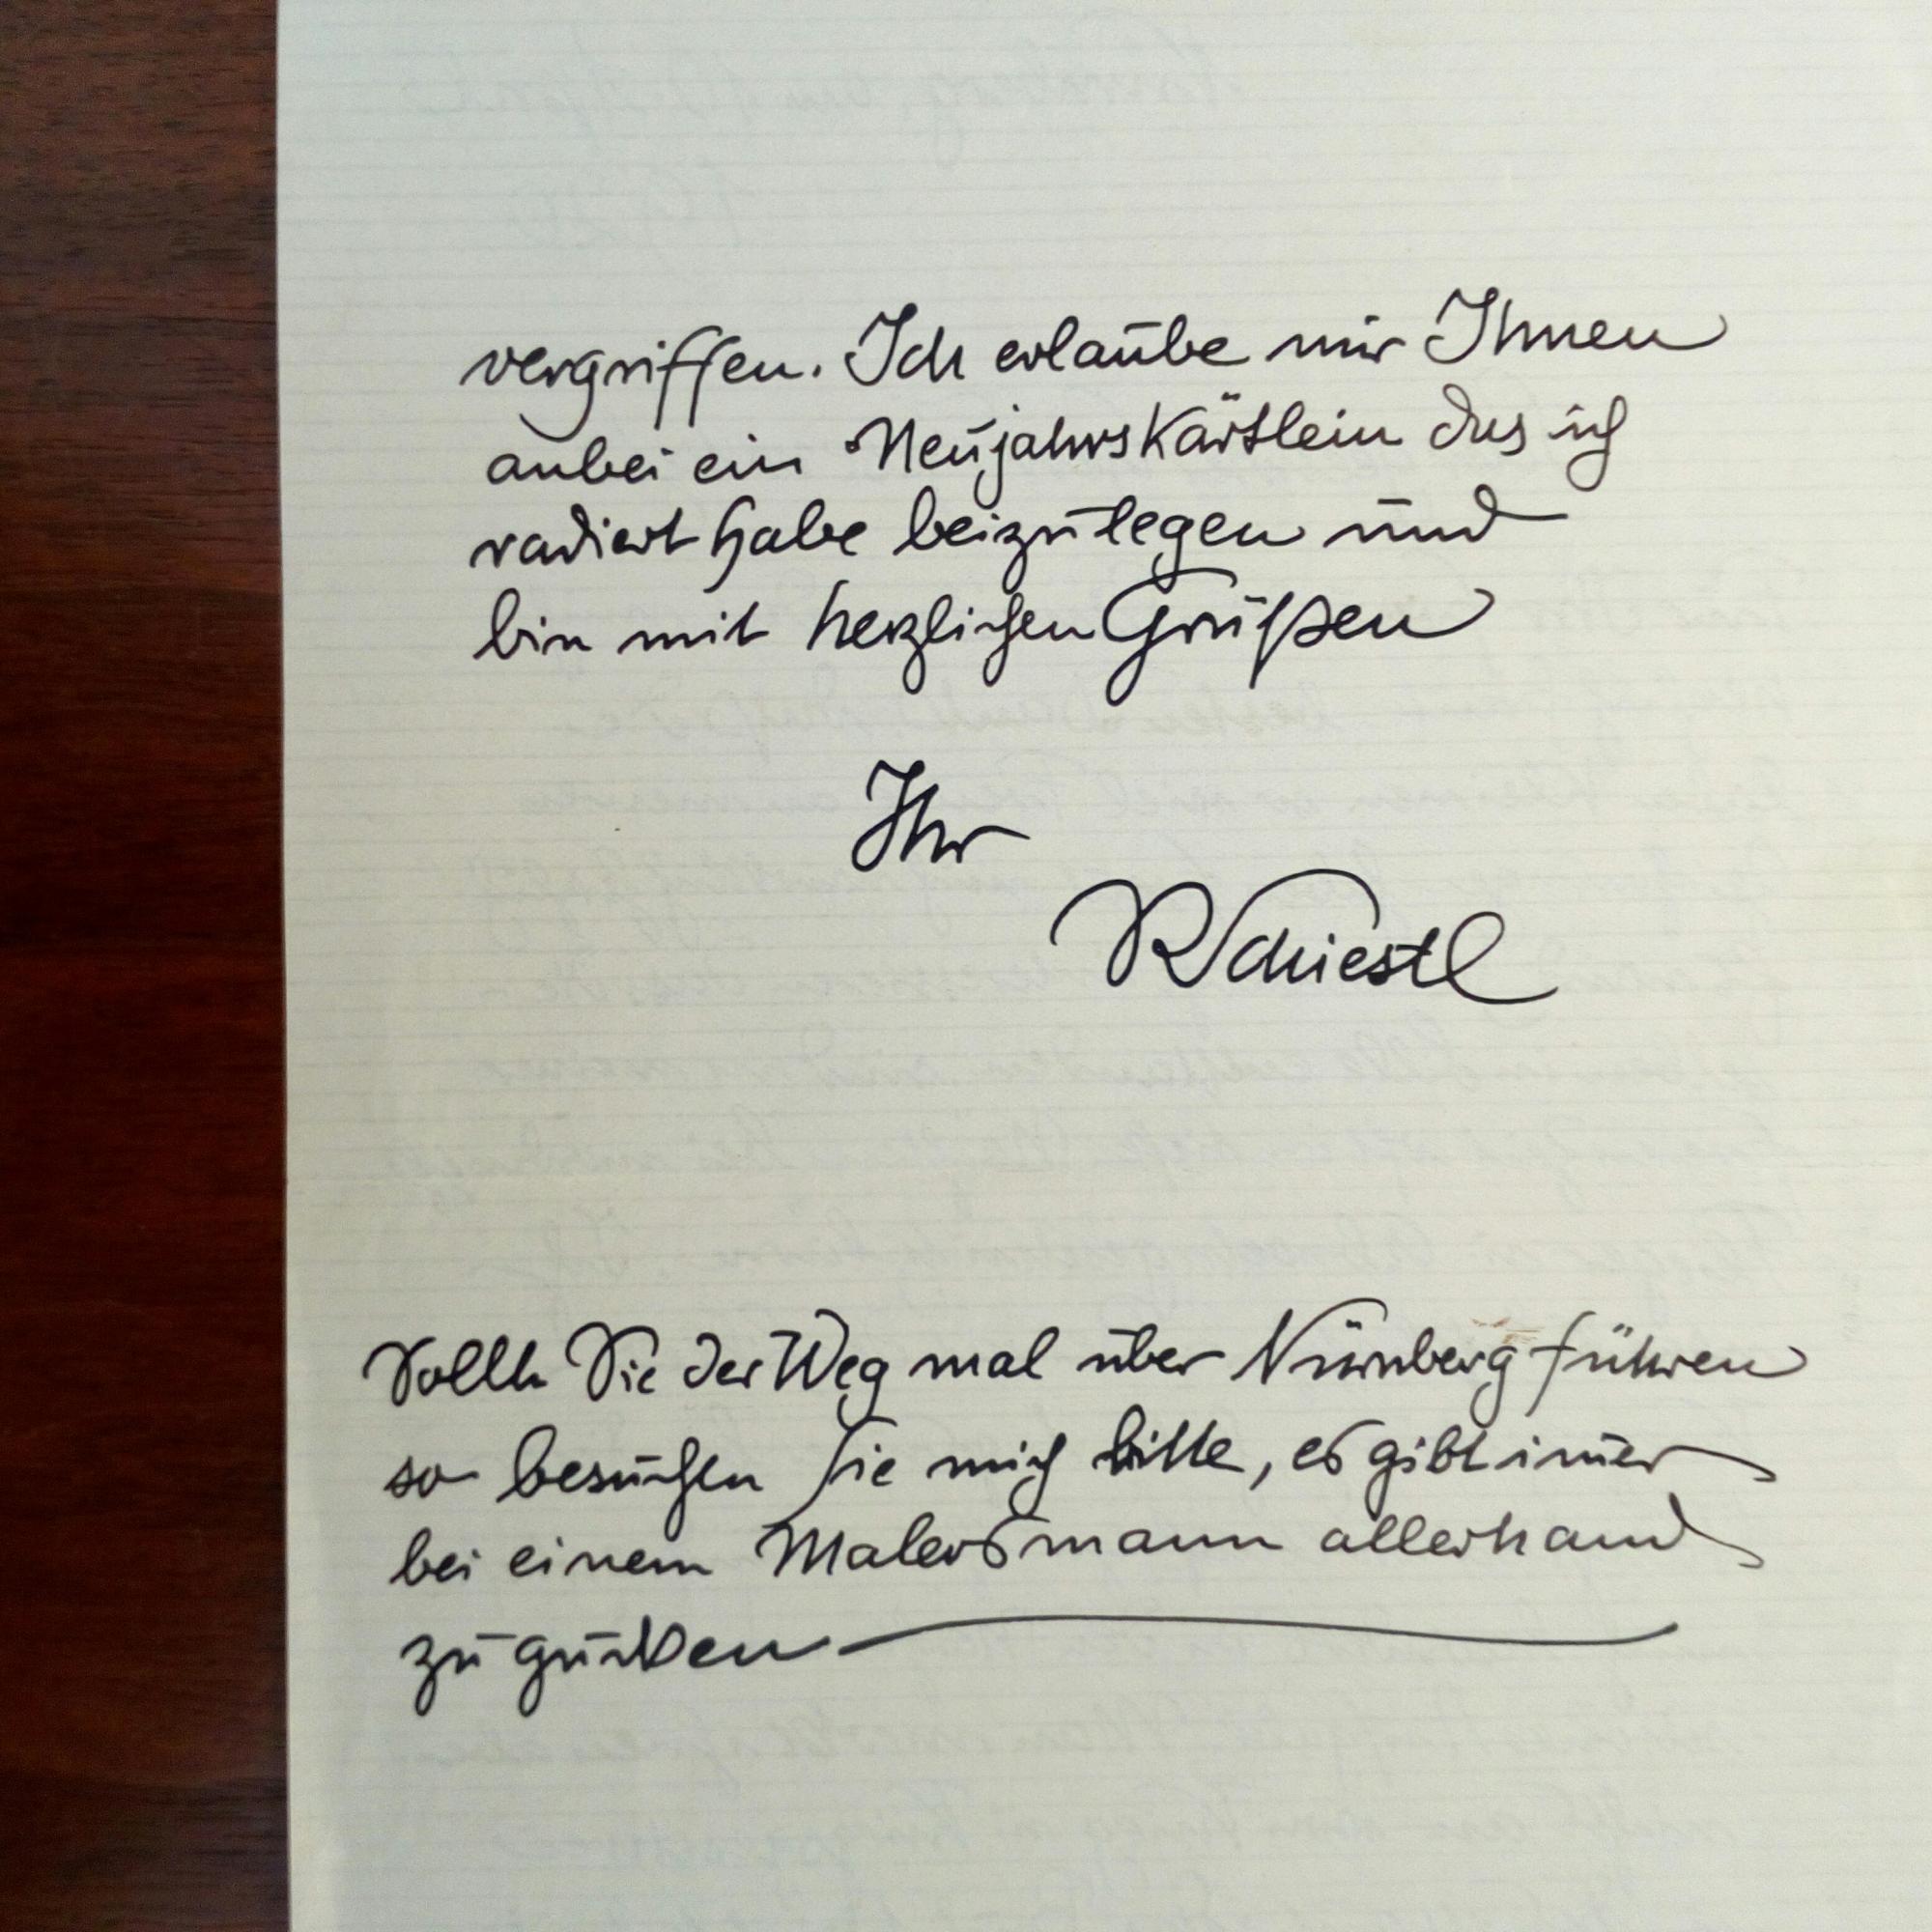 vergriffen. Ich erlaube mir Ihnen
anbei ein Neujahrskärtlein das ich
radiert habe beizulegen und
bin mit herzlichen Grüßen
Ihr
RSchiestl
Sollte Sie der Weg mal über Nürnberg führen
so besuchen Sie mich bitte, es gibt im̄er
bei einem Malersmann allerhand
zu gucken